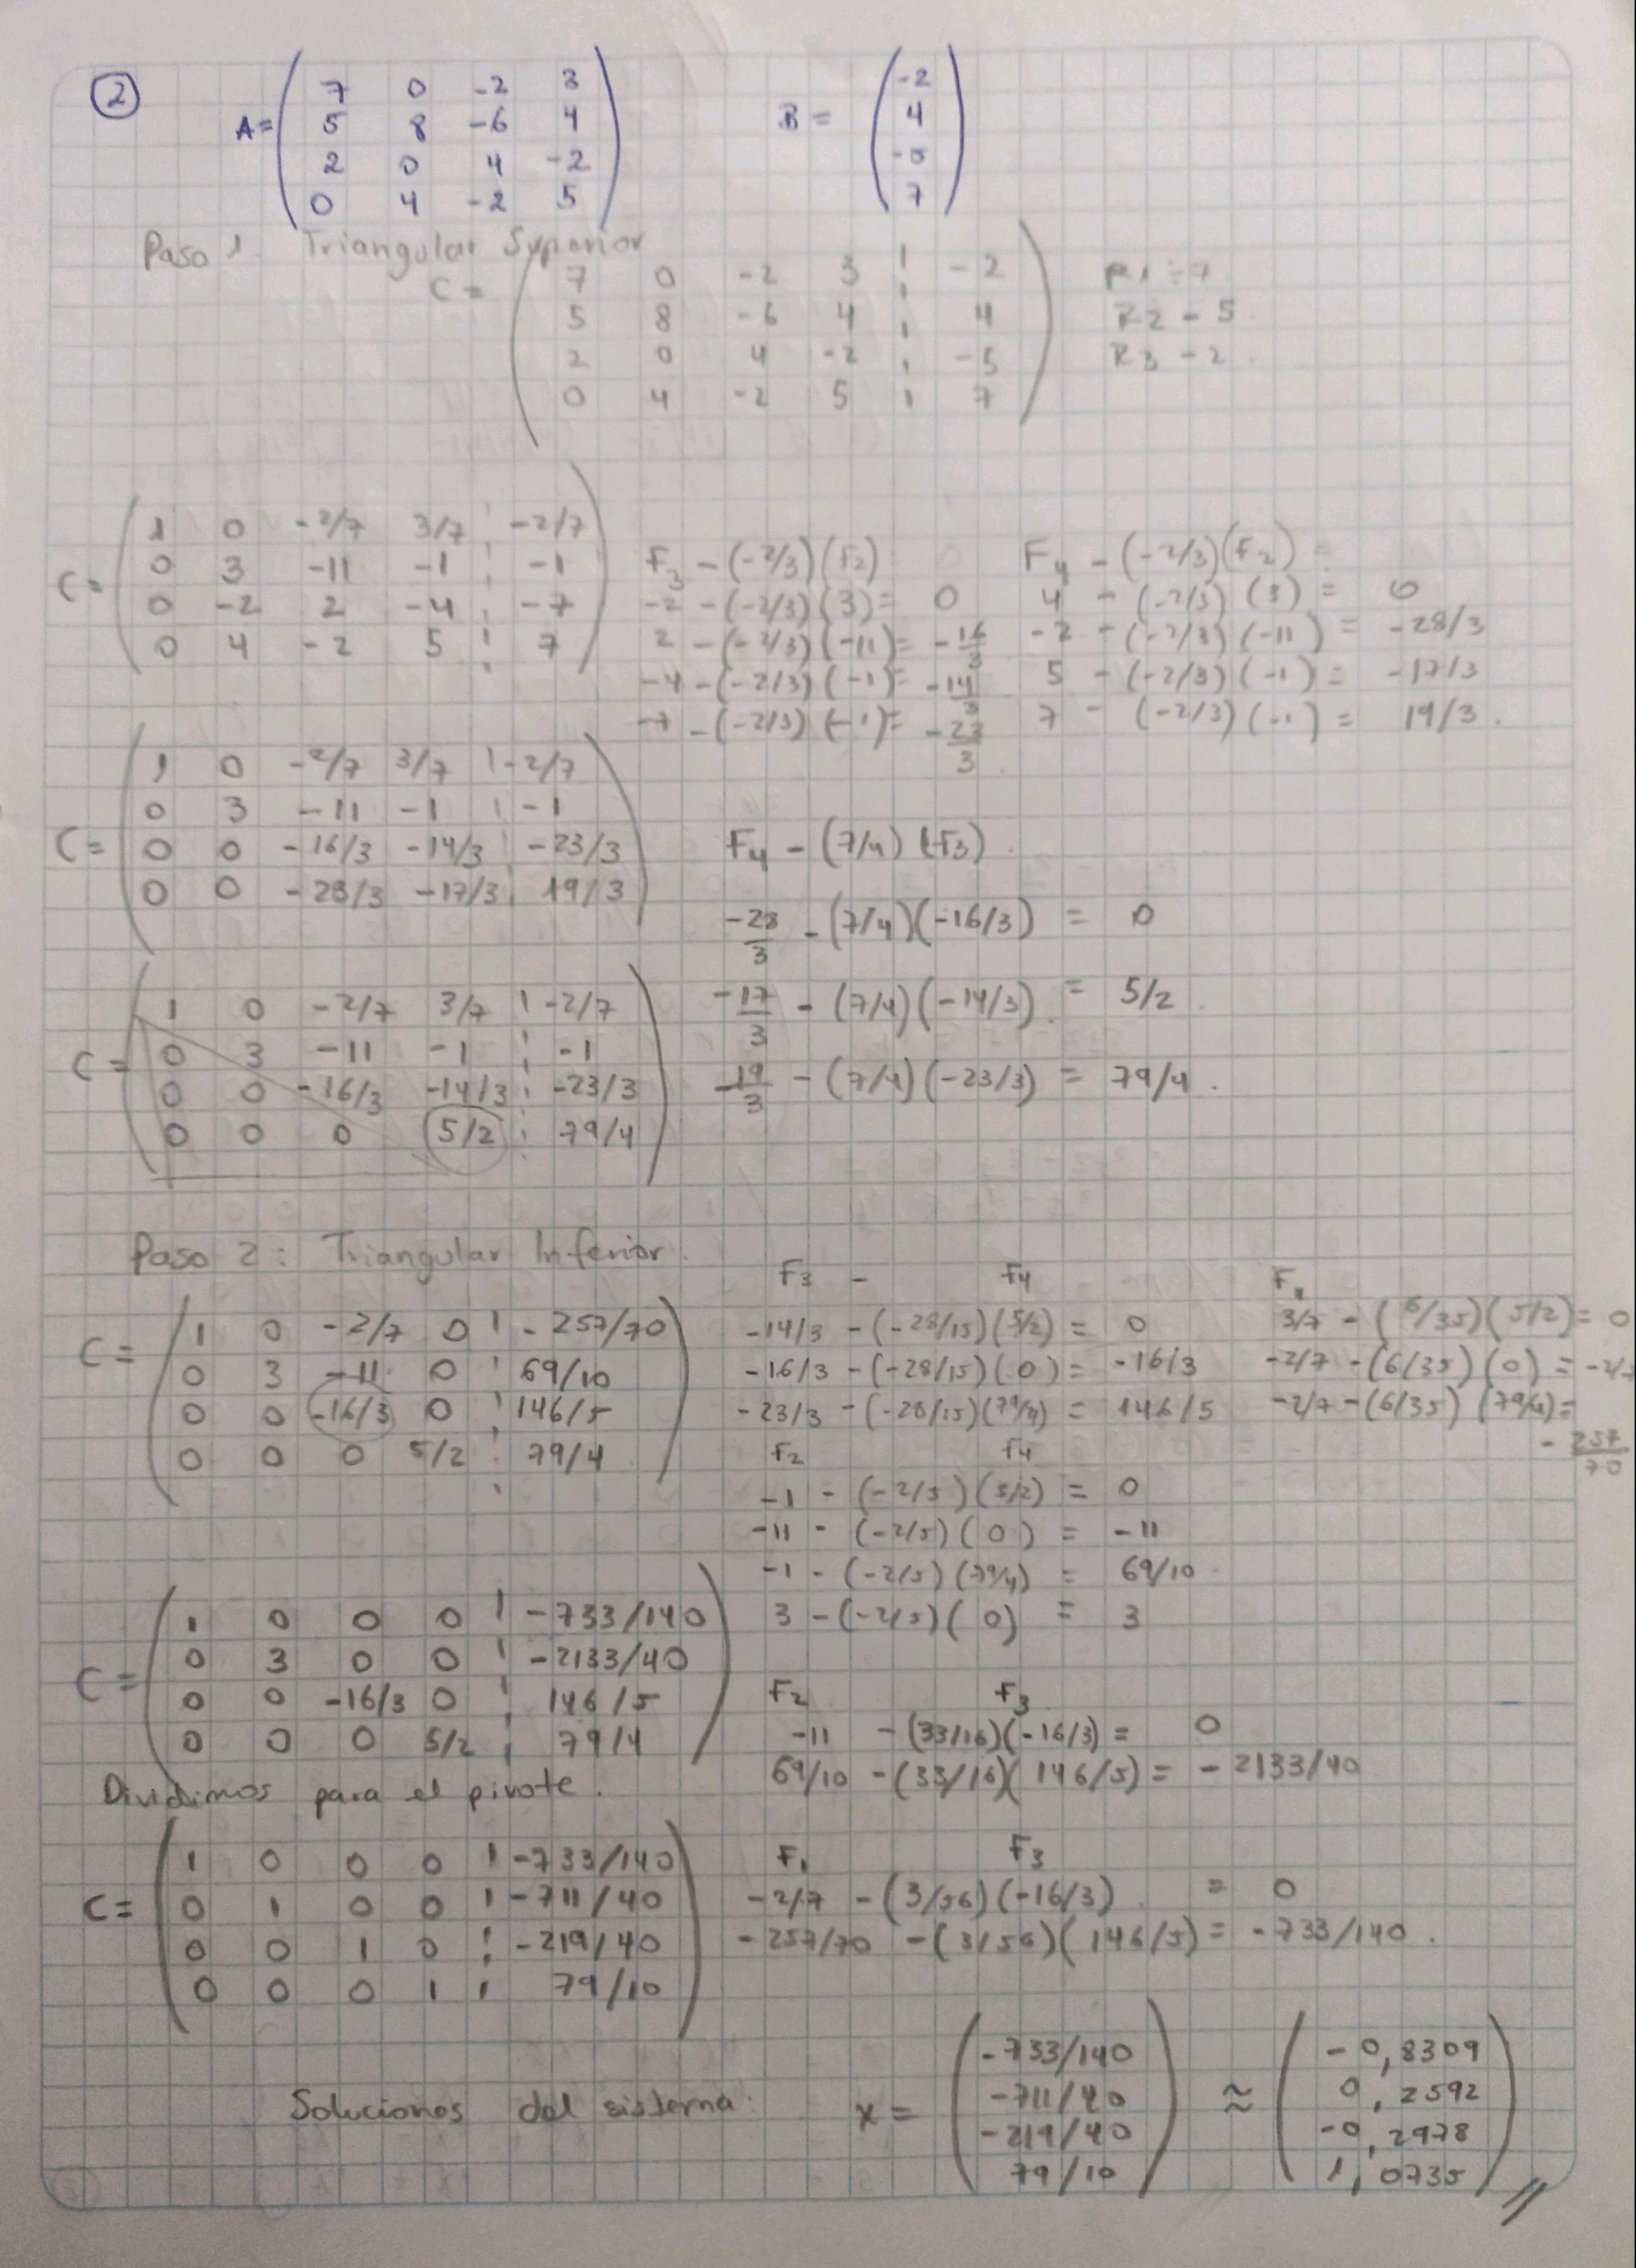 ②
A = ( 7 0 -2 3
5 8 -6 4
2 0 4 -2
0 4 -2 5 )
B = ( -2
4
-5
7 )
Paso 1. Triangular Superior
C = ( 7 0 -2 3 ¦ -2 ) R1 ÷ 7
5 8 -6 4 ¦ 4 R2 - 5
2 0 4 -2 ¦ -5 R3 - 2
0 4 -2 5 ¦ 7
C = ( 1 0 -2/7 3/7 ¦ -2/7
0 3 -11 -1 ¦ -1
0 -2 2 -4 ¦ -7
0 4 -2 5 ¦ 7 )
F3 - (-2/3)(F2)
-2 - (-2/3)(3) = 0
2 - (-2/3)(-11) = -16/3
-4 - (-2/3)(-1) = -14/3
-7 - (-2/3)(-1) = -23/3
F4 - (-2/3)(F2) =
4 - (-2/3)(3) = 0
-2 - (-2/3)(-11) = -28/3
5 - (-2/3)(-1) = -17/3
7 - (-2/3)(-1) = 19/3.
C = ( 1 0 -2/7 3/7 ¦ -2/7
0 3 -11 -1 ¦ -1
0 0 -16/3 -14/3 ¦ -23/3
0 0 -28/3 -17/3 ¦ 19/3 )
F4 - (7/4)(F3).
-28/3 - (7/4)(-16/3) = 0
-17/3 - (7/4)(-14/3) = 5/2.
-19/3 - (7/4)(-23/3) = 79/4.
C = ( 1 0 -2/7 3/7 ¦ -2/7
0 3 -11 -1 ¦ -1
0 0 -16/3 -14/3 ¦ -23/3
0 0 0 5/2 ¦ 79/4 )
Paso 2: Triangular Inferior.
C = ( 1 0 -2/7 0 ¦ -257/70
0 3 -11 0 ¦ 69/10
0 0 -16/3 0 ¦ 146/5
0 0 0 5/2 ¦ 79/4 )
F3 - F4
-14/3 - (-28/15)(5/2) = 0
-16/3 - (-28/15)(0) = -16/3
-23/3 - (-28/15)(79/4) = 146/5
F1
3/7 - (6/35)(5/2) = 0
-2/7 - (6/35)(0) = -2/7
-2/7 - (6/35)(79/4) =
-257/70
F2 F4
-1 - (-2/5)(5/2) = 0
-11 - (-2/5)(0) = -11
-1 - (-2/5)(79/4) = 69/10
3 - (-2/5)(0) = 3
C = ( 1 0 0 0 ¦ -733/140
0 3 0 0 ¦ -2133/40
0 0 -16/3 0 ¦ 146/5
0 0 0 5/2 ¦ 79/4 )
F2 F3
-11 - (33/16)(-16/3) = 0
69/10 - (33/16)(146/5) = -2133/40
Dividimos para el pivote.
C = ( 1 0 0 0 ¦ -733/140
0 1 0 0 ¦ -711/40
0 0 1 0 ¦ -219/40
0 0 0 1 ¦ 79/10 )
F1 F3
-2/7 - (3/56)(-16/3) = 0
-257/70 - (3/56)(146/5) = -733/140.
Soluciones del sistema: x = ( -733/140
-711/40
-219/40
79/10 ) ≈ ( -0,8309
0,2592
-0,2978
1,0735 )